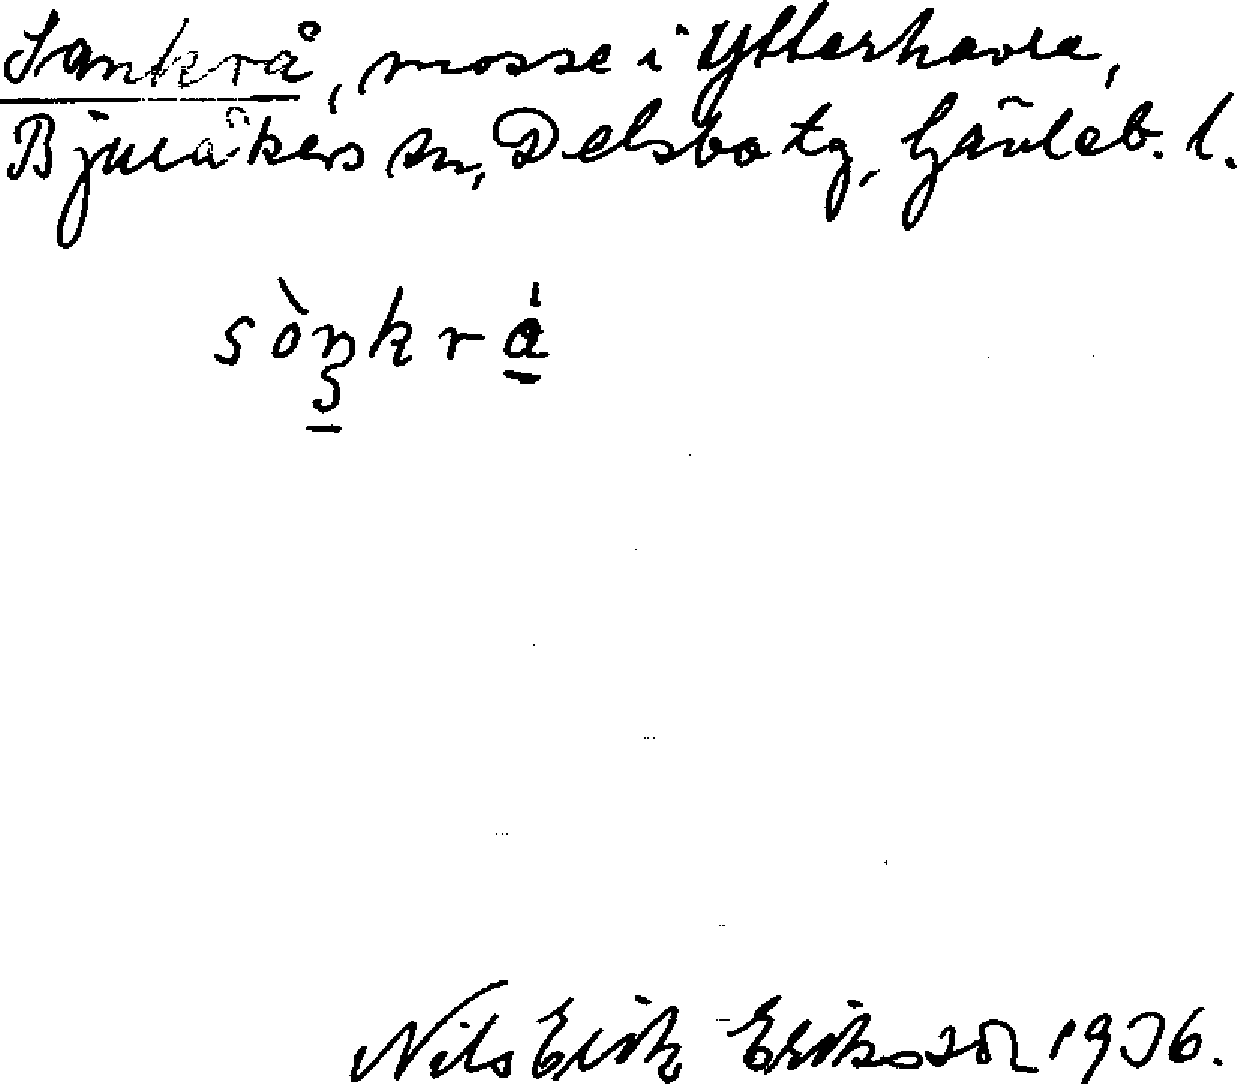 Sankrå, mosse i Ytterhavra,
Bjuråkers sn, Delsbo tg, Gävleb. l.
sòŋkrá
Nils Erik Eriksson 1936.